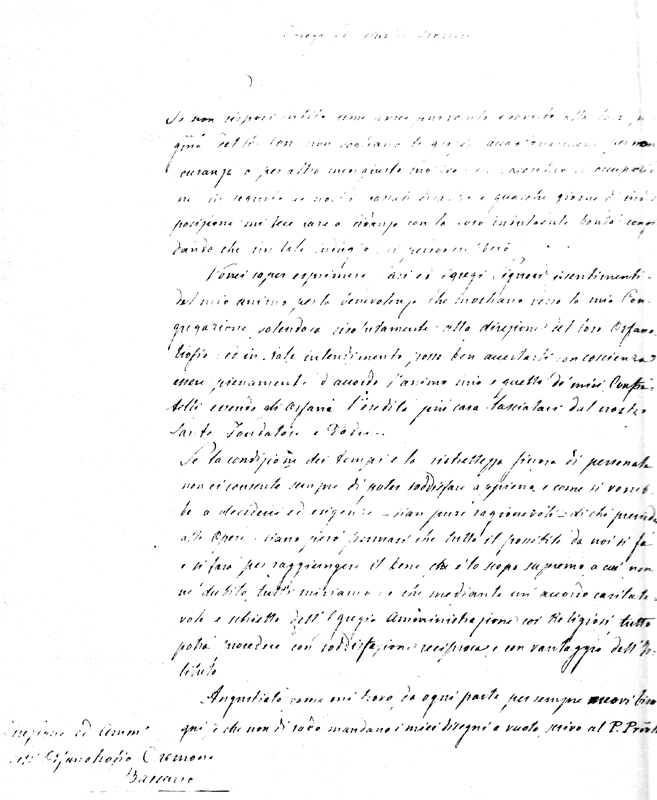 Egregi ed Illustri Signori
Se non risposi subito come avrei
non vogliano le
curanza o per altro men giusto motivo occupazio
ne in seguito ai e qualche giorno d'indi
sposizione mi fece con la loro bontà confi
dando che un tale indugio mi perdoneranno
Vorrei saper esprimere Egregi Signori i sentimenti
del mio animo per la benevolenza che mostrano verso la mia Con
gregazione volendola risolutamente alla direzione del loro Orfano
trofio: ed in tale intendimento posso ben accertarli con coscienza
essere pienamente d'accordo l'animo mio e quello de' miei Confra
telli essendo gli Orfani l'eredità più cara lasciataci dal nostro
Santo Fondatore e Padre.
Se la condizione dei tempi e la ristrettezza finora di personale
non ci consente sempre di poter soddisfare appieno e come si vorreb
be a desideri ed esigenze - sian pure ragionevoli - di chi presiede
alle Opere: siano però persuasi che tutto il possibile da noi si fa
e si farà per raggiungere il bene che è lo scopo supremo a cui non
ne dubito, tutti miriamo: e che mediante un accordo caritate
vole e schietto dell'Egregia Amministrazione coi Religiosi tutto
potrà procedere con soddisfazione reciproca e con vantaggio dell'Is
tituto.
Angustiato come mi trovo, da ogni parte per sempre nuovi biso
gni, e che non di rado mandano i miei disegni a vuoto, scrivo al P.
Direzione ed Amm
dell'Orfanotrofio Cremona
Bassano